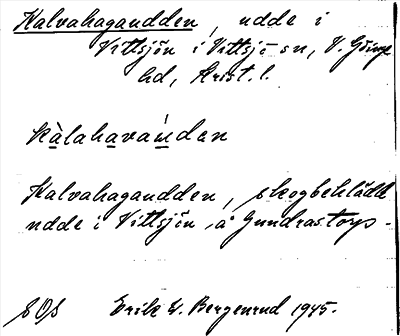 Kalvahagaudden, udde i
Vittsjön i Vittsjö sn, V. Göinge
hd, Krist. l.
kàlahava
Kalvahagaudden, skogbeklädd
udde i Vittsjön, å Gundrastorps-
SOS Erik W. Bergenrud 1945.